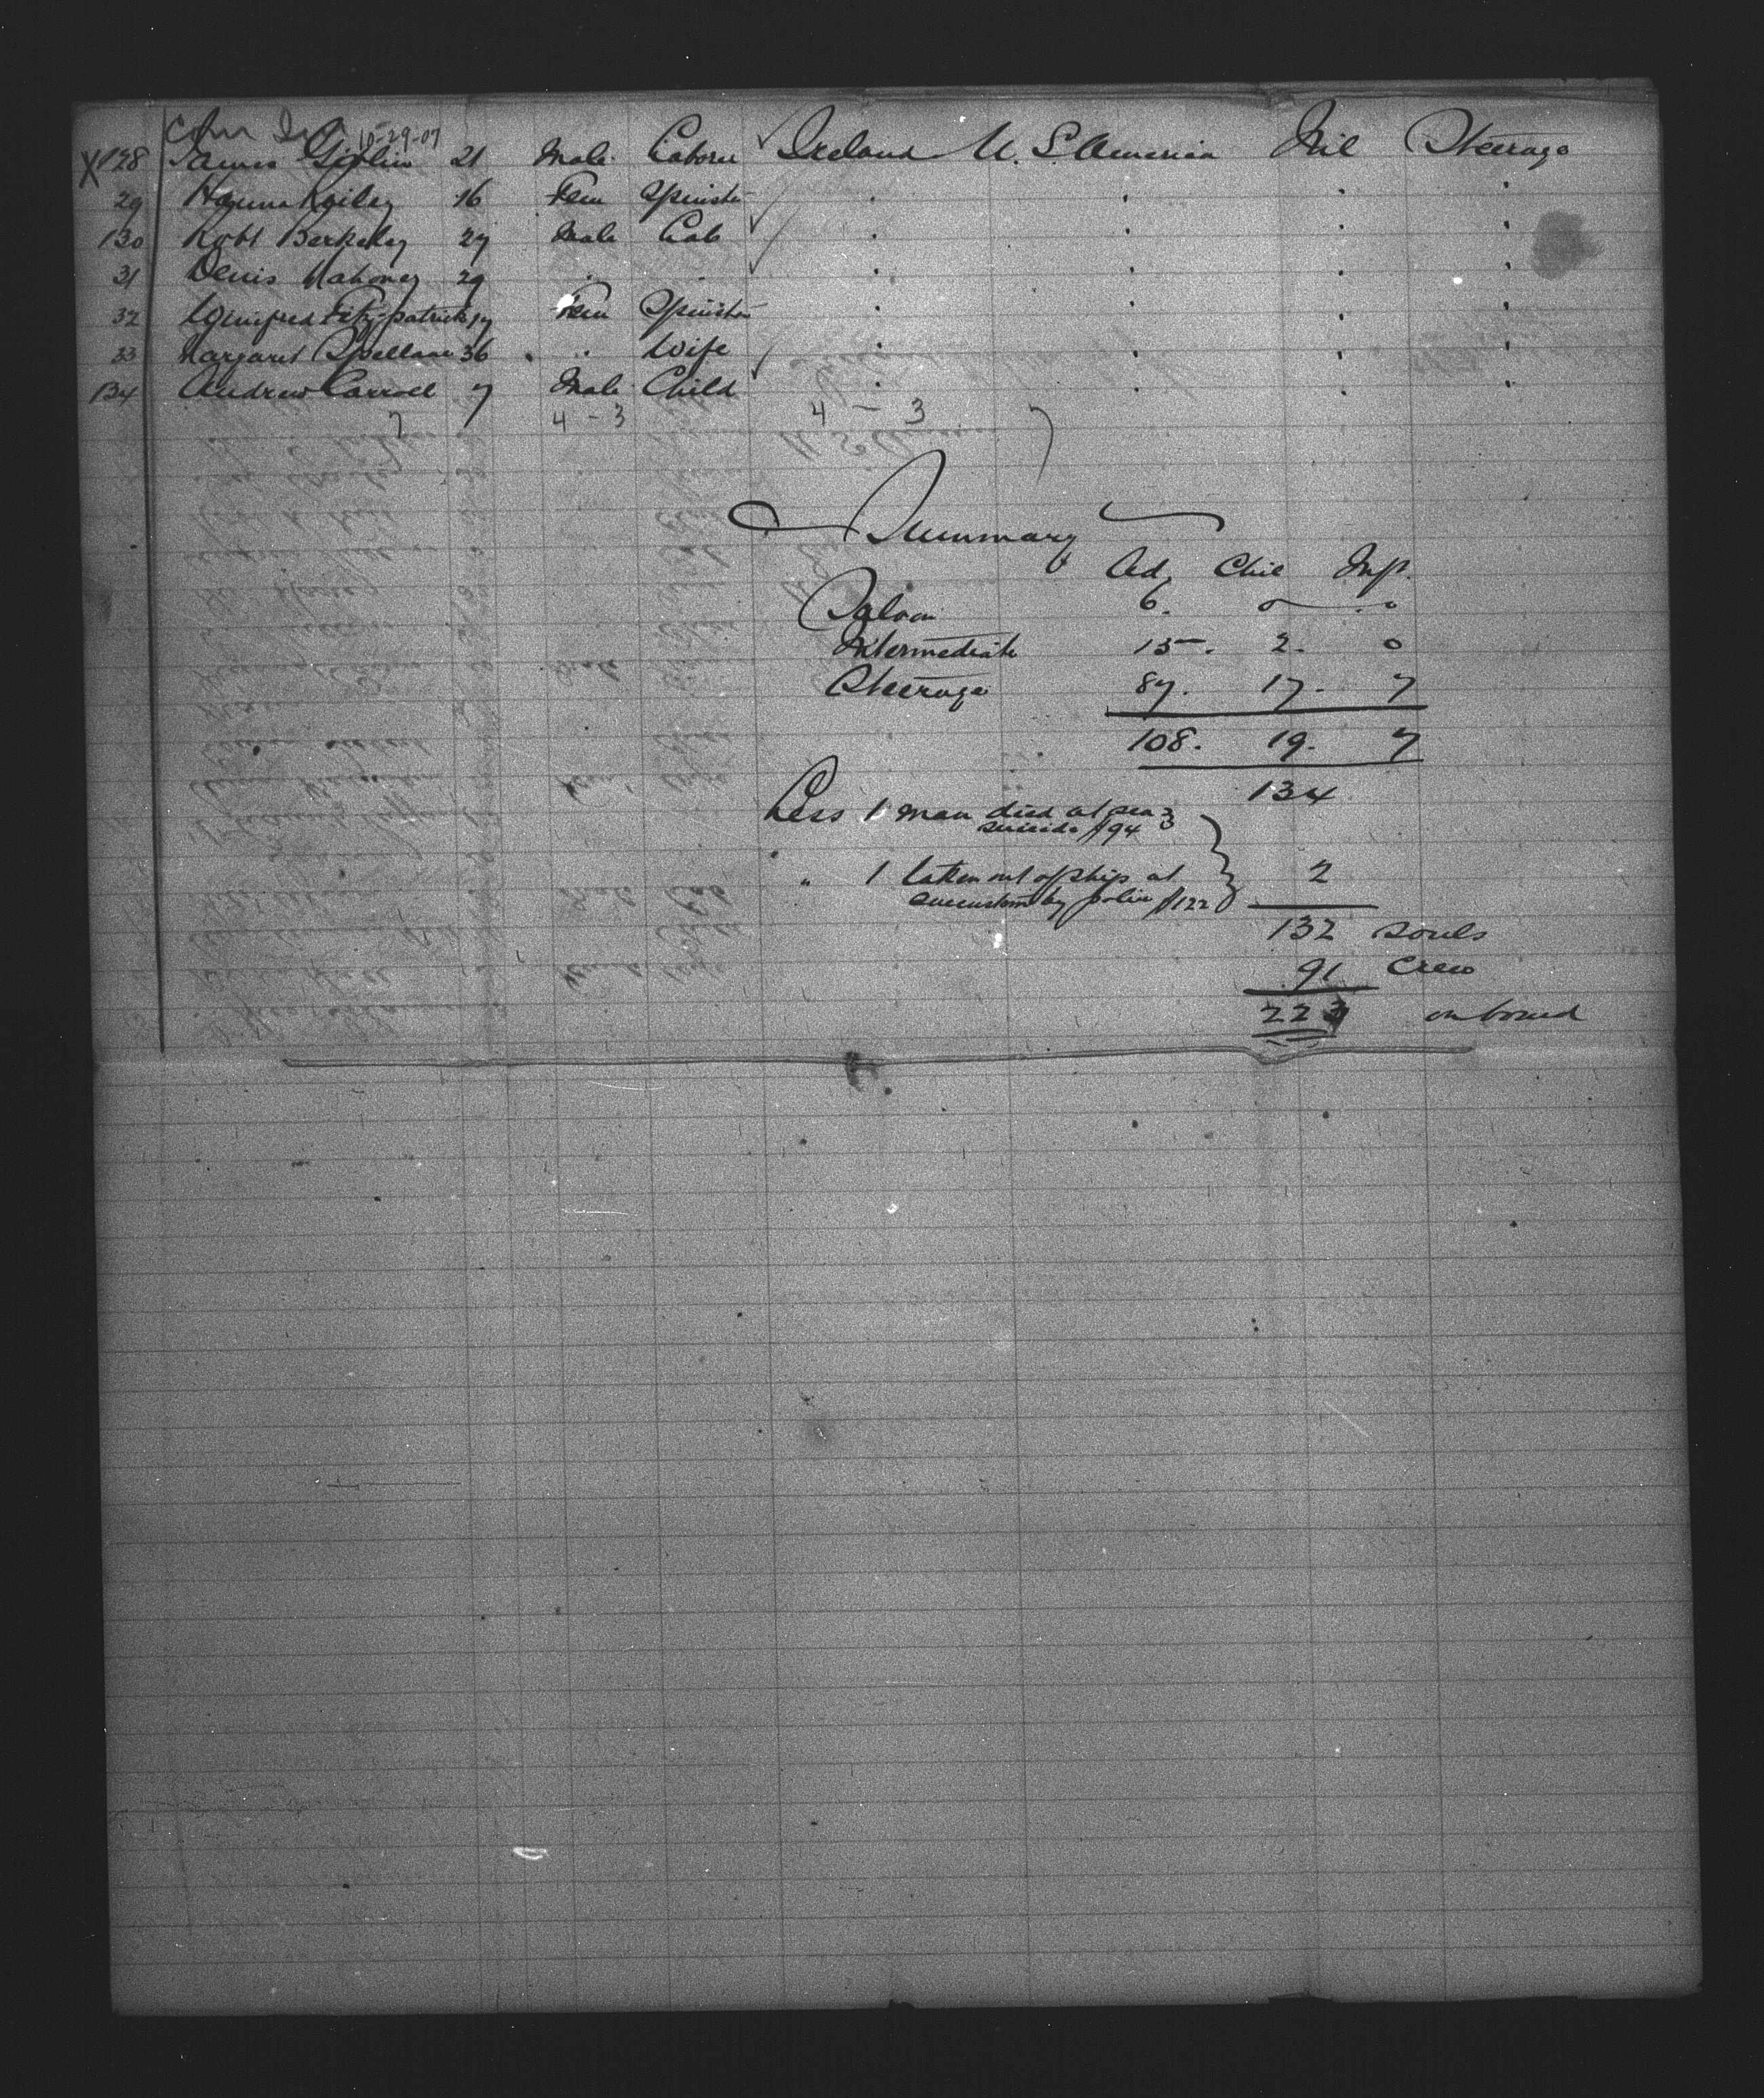 10-29-07
X128 James Giblin 21 Male Laborer Ireland U. S. America Nil Steerage
29 Hanna Kailey 16 Fem Spinster " " " "
130 Robt Berkeley 27 Male Lab " " " "
31 Denis Mahoney 29 " " " " " "
32 Winifred Fitzpatrick 17 Fem Spinster " " " "
33 Margaret Spellane 36 " Wife " " " "
134 Andrew Carroll 7 Male Child " " " "
7 4 - 3 4 - 3 7
Summary
Ad, Chil Inft.
Saloon 6. 0 0
Intermediate 15. 2. 0
Steerage 87. 17. 7
108. 19. 7
134
Less 1 man died at sea
suicide #94
" 1 taken out of ship at 2
Queenstown by police #122
132 souls
91 Crew
223 on board